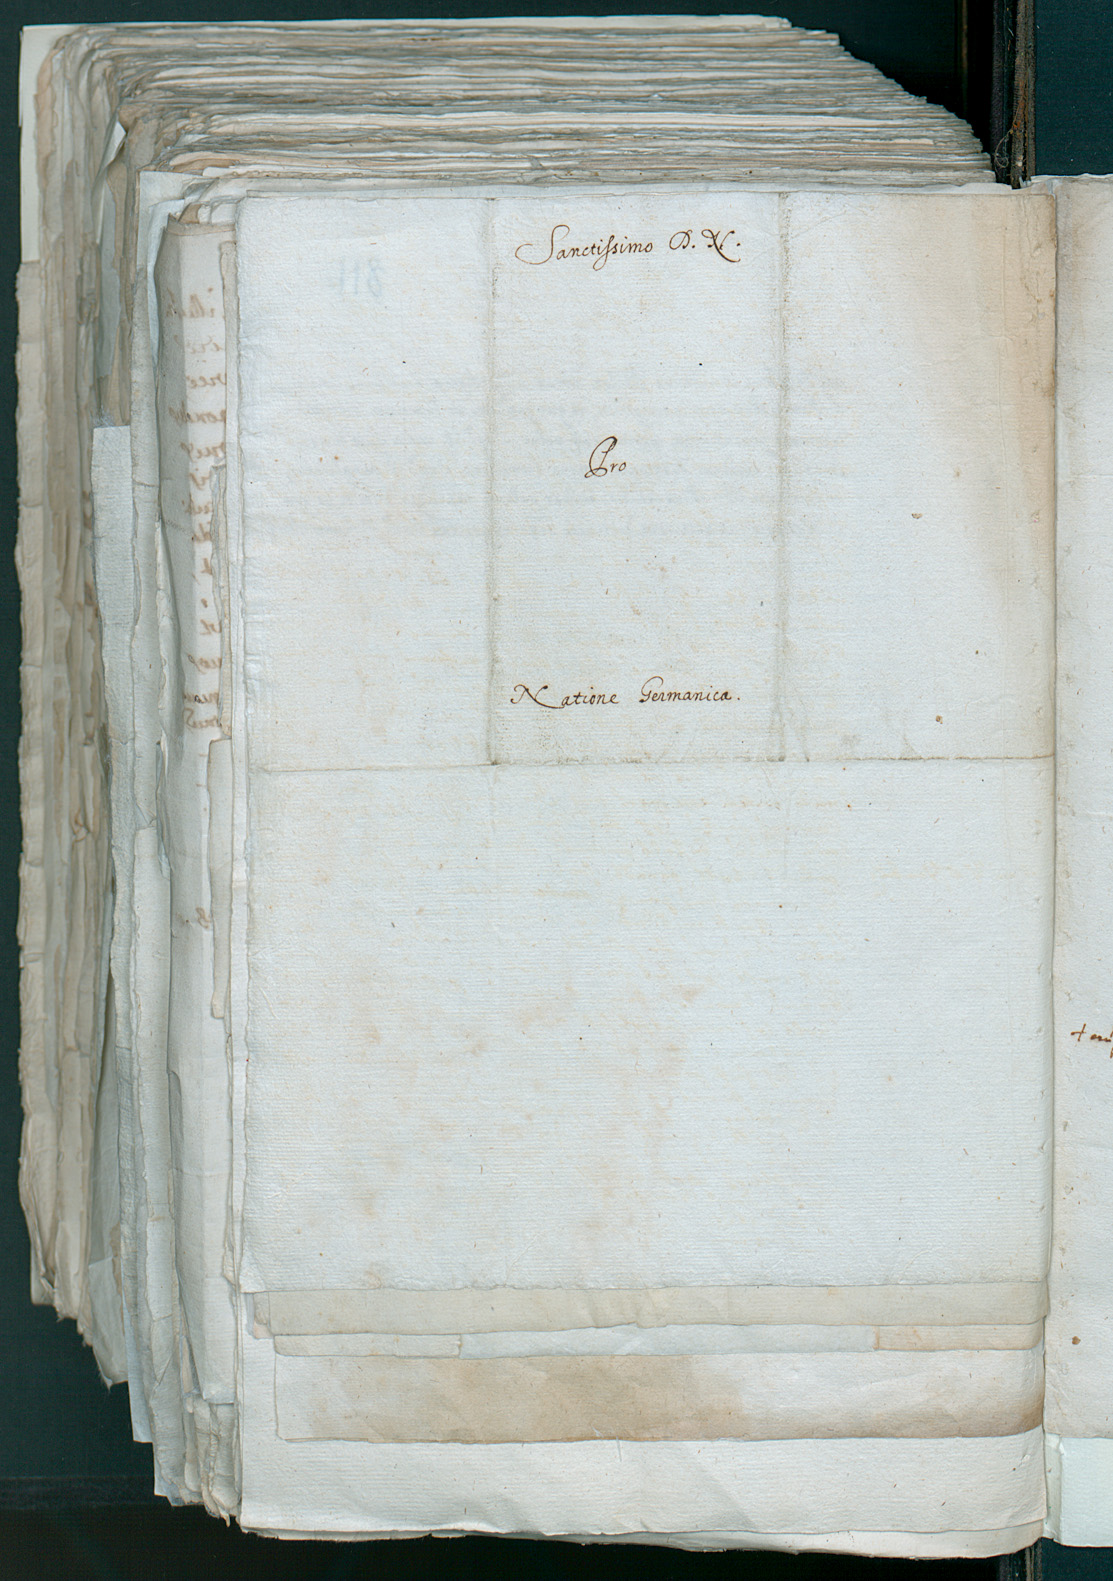 Sanctissimo D. N.
Pro
Natione Germanica.